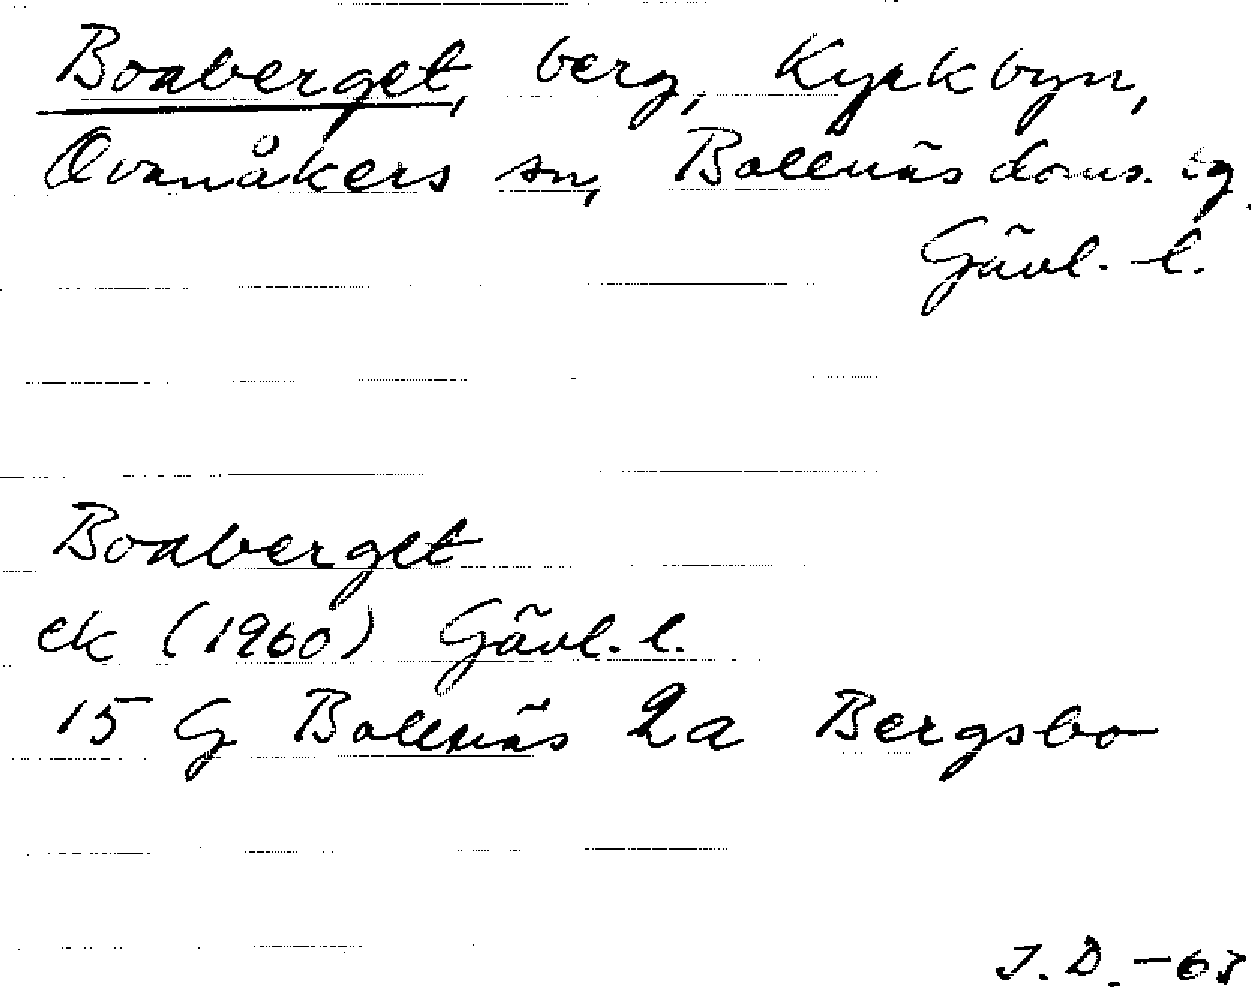 Boaberget, berg, Kyrkbyn,
Ovanåkers sn, Bollnäs doms. sg.
Gävl. l.
Boaberget
ek (1960) Gävl. l.
15 G Bollnäs 2a Bergsbo
J. D. -63